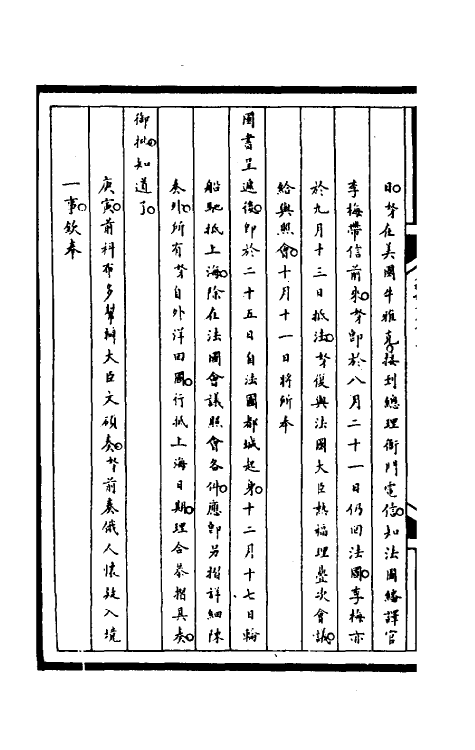 日。孥在美國牛雅真接到總理衙門電信。知法國繙譯官
李梅帶信前來。孥卽於八月二十一日仍回法國。李梅亦
於九月十三日抵法。孥復與法國大臣熱福理疊次會議。
給與照會。十月十一日將所奉
國書呈遞後。卽於二十五日自法國都城起身。十二月十七日輪
船馳抵上海。除在法國會議照會各件。應卽另摺詳細陳
奏外。所有孥自外洋回國。行抵上海日期。理合恭摺具奏。
御批。知道了。
庚寅。前科布多幫辦大臣文碩奏。孥前奏俄人懷疑入境
一事。欽奉